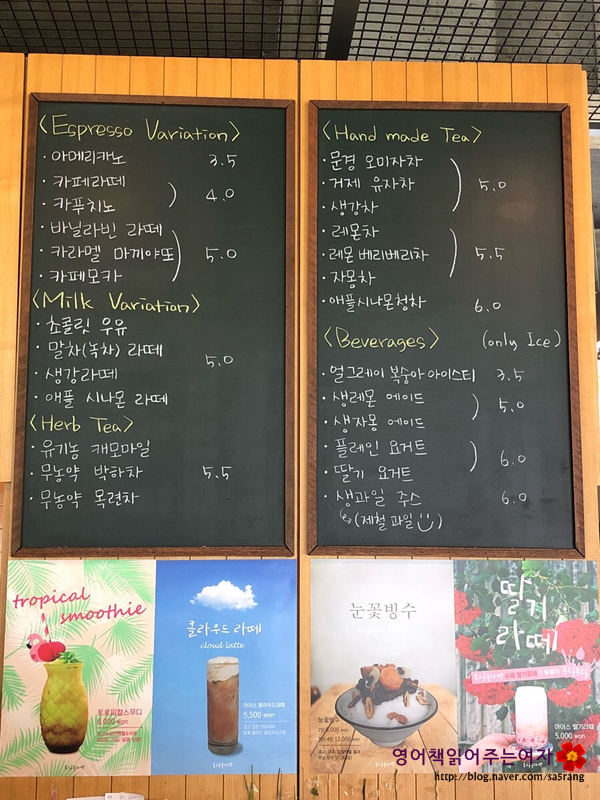 <Espresso Variation>
· 아메리카노 3.5
· 카페라떼
· 카푸치노 ) 4.0
· 바닐라빈 라떼
· 카라멜 마끼야또 ) 5.0
· 카페모카
<Milk Variation>
· 초콜릿 우유
· 말차(녹차) 라떼
· 생강라떼 5.0
· 애플 시나몬 라떼
<Herb Tea>
· 유기농 캐모마일
· 무농약 박하차 5.5
· 무농약 목련차
<Hand made Tea>
· 문경 오미자차
· 거제 유자차 ) 5.0
· 생강차
· 레몬차
· 레몬 베리베리차 ) 5.5
· 자몽차
· 애플시나몬청차 6.0
<Beverages> (only Ice)
· 얼그레이 복숭아 아이스티 3.5
· 생레몬 에이드
· 생자몽 에이드 ) 5.0
· 플레인 요거트
· 딸기 요거트 ) 6.0
· 생과일 주스 6.0
(제철과일)
tropical
smoothie
트로피칼스무디
6,000 won
클라우드 라떼
cloud latte
아이스 클라우드라떼
5,500 won
눈꽃빙수
눈꽃빙수
딸기
라떼
아이스 딸기라떼
5,000 won
영어책읽어주는여자
http://blog.naver.com/sa5rang